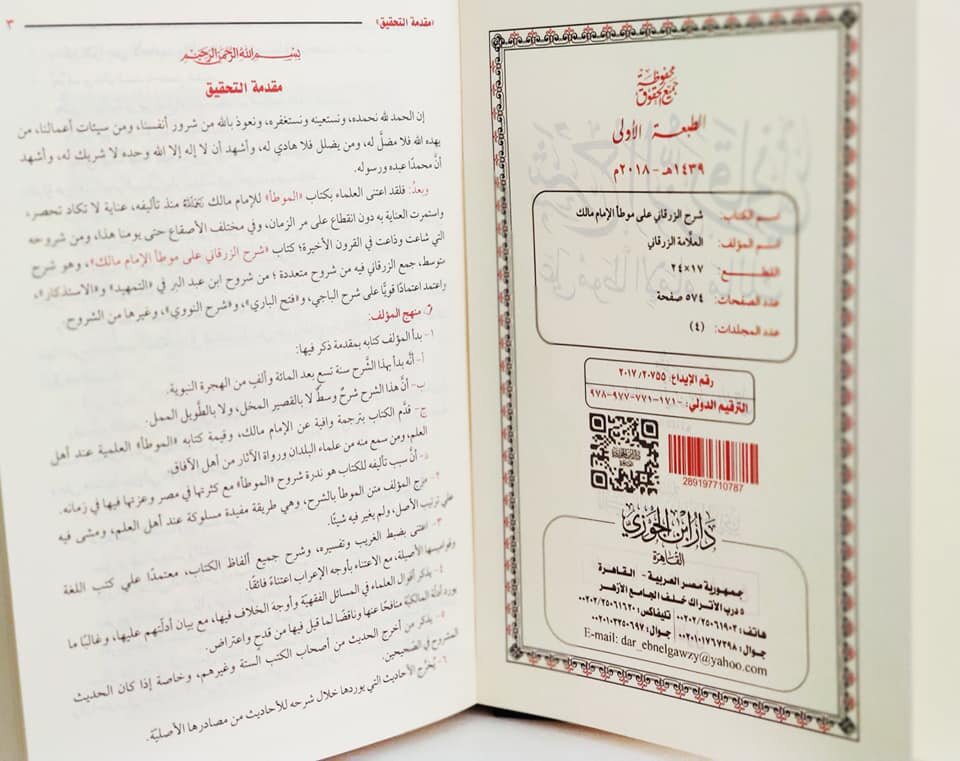 جميع الحقوق محفوظة
الطبعة الأولى
١٤٣٩هـ - ٢٠١٨م
اسم الكتاب: شرح الزرقاني على موطأ الإمام مالك
اسم المؤلف: العلَّامة الزرقاني
القطع: ١٧×٢٤
عدد الصفحات: ٥٧٤ صفحة
عدد المجلدات: (٤)
رقم الإيداع: ٢٠١٧/٢٠٧٥٥
الترقيم الدولي: ٩٧٨-٩٧٧-٧٧١-١٧١-
289197710787
دار ابن الجوزي
القاهرة
جمهورية مصر العربية - القاهرة
٥ درب الأتراك خلف الجامع الأزهر
هاتف: ٠٠٢٠٢/٢٥٠٦١٩٠٣ تليفاكس: ٠٠٢٠٢/٢٥٠٦١٦٢٠
جوال: ٠٠٢٠١٠١٧٦٧٢٩٨ جوال: ٠٠٢٠١٠٢٢٥٠٦٩٧
E-mail: dar_ebnelgawzy@yahoo.com
«مقدمة التحقيق» ٣
بسم الله الرحمن الرحيم
مقدمة التحقيق
إن الحمد لله نحمده، ونستعينه ونستغفره، ونعوذ بالله من شرور أنفسنا، ومن سيئات أعمالنا، من
يهده الله فلا مضلَّ له، ومن يضلل فلا هادي له، وأشهد أن لا إله إلا الله وحده لا شريك له، وأشهد
أنَّ محمدًا عبده ورسوله.
وبعدُ: فلقد اعتنى العلماء بكتاب «الموطأ» للإمام مالك رحمه الله منذ تأليفه، عناية لا تكاد تحصر،
واستمرت العناية به دون انقطاع على مر الزمان، وفي مختلف الأصقاع حتى يومنا هذا، ومن شروحه
التي شاعت وذاعت في القرون الأخيرة؛ كتاب «شرح الزرقاني على موطأ الإمام مالك»، وهو شرح
متوسط، جمع الزرقاني فيه من شروح متعددة؛ من شروح ابن عبد البر في «التمهيد» و«الاستذكار»،
واعتمد اعتمادًا قويًّا على شرح الباجي، و«فتح الباري»، و«شرح النووي»، وغيرها من الشروح.
منهج المؤلف:
١- بدأ المؤلف كتابه بمقدمة ذكر فيها:
أ- أنَّه بدأ بهذا الشَّرح سنة تسع بعد المائة وألفٍ من الهجرة النبوية.
ب- أنَّ هذا الشرح شرحٌ وسطٌ لا بالقصير المخل، ولا بالطَّويل الممل.
ج- قدَّم الكتاب بترجمة وافية عن الإمام مالك، وقيمة كتابه «الموطأ» العلمية عند أهل
العلم، ومن سمع منه من علماء البلدان ورواة الآثار من أهل الآفاق.
د- أنَّ سبب تأليفه للكتاب هو ندرة شروح «الموطأ» مع كثرتها في مصر وعزتها فيها في زمانه.
مزج المؤلف متن الموطأ بالشرح، وهي طريقة مفيدة مسلوكة عند أهل العلم، ومشى فيه
على ترتيب الأصل، ولم يغير فيه شيئًا.
٣- اعتنى بضبط الغريب وتفسيره، وشرح جميع ألفاظ الكتاب، معتمدًا على كتب اللغة
وقواميسها الأصيلة، مع الاعتناء بأوجه الإعراب اعتناءً فائقًا.
٤- يذكر أقوال العلماء في المسائل الفقهيَّة وأوجه الخلاف فيها، مع بيان أدلَّتهم عليها، وغالبًا ما
يورد أدلَّة المالكيَّة منافحًا عنها وناقضًا لما قيل فيها من قدحٍ واعتراض.
٥- يذكر من أخرج الحديث من أصحاب الكتب الستة وغيرهم، وخاصة إذا كان الحديث
المشروح في الصَّحيحين.
٦- يُخرِّج الأحاديث التي يوردها خلال شرحه للأحاديث من مصادرها الأصليَّة.